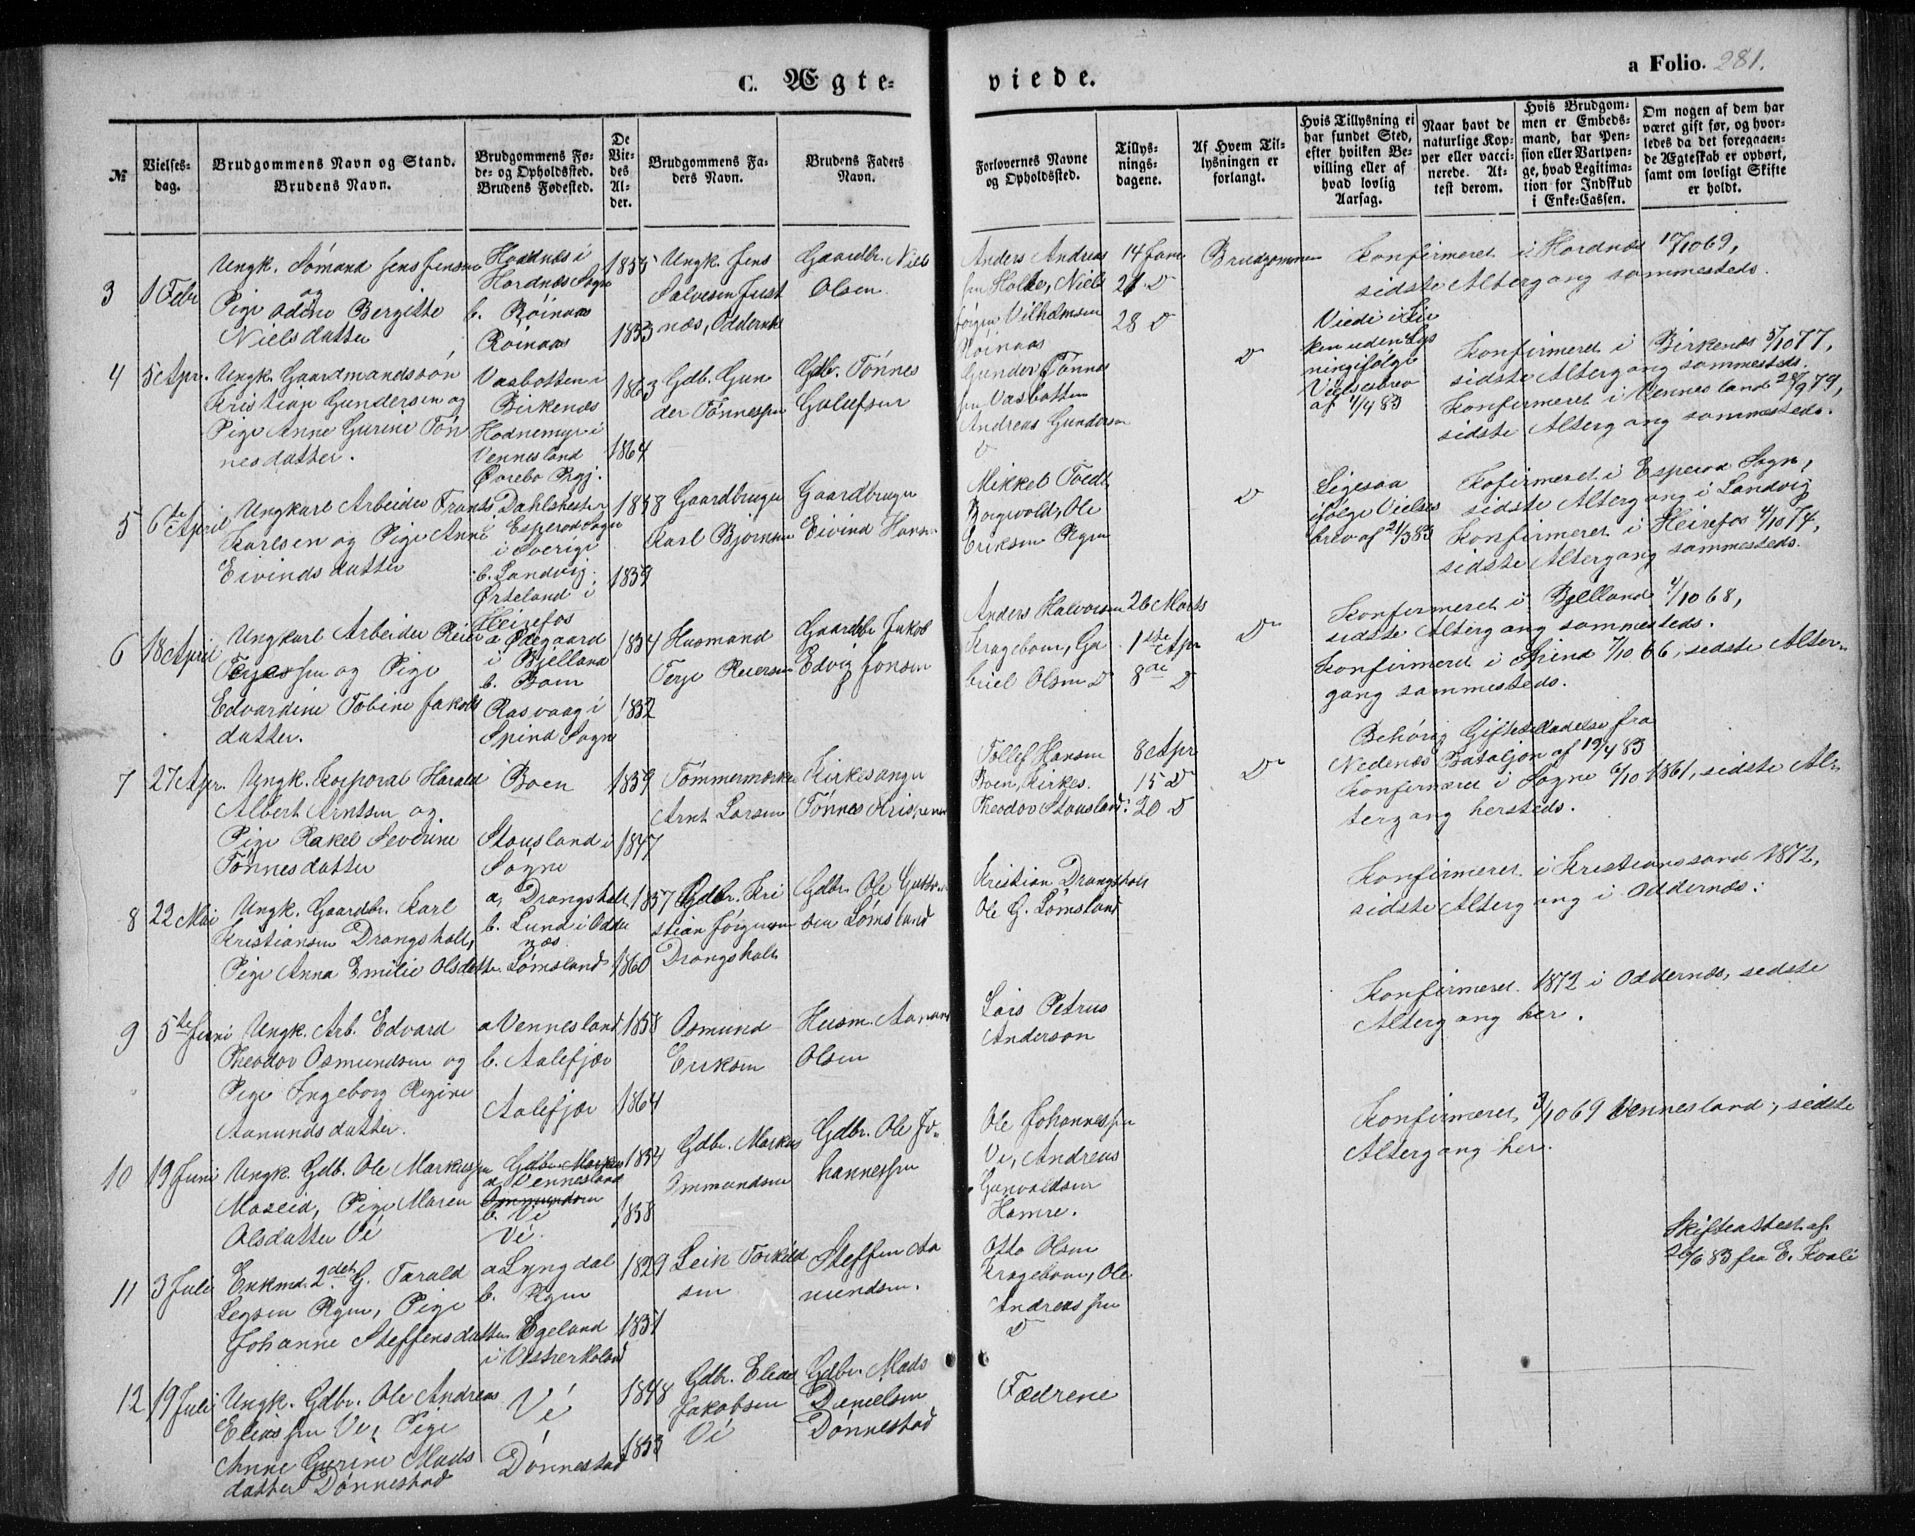 C. Ægte-
viede.
a Folio. 281.
№
Vielses-
dag.
Brudgommens Navn og Stand.
Brudens Navn.
Brudgommens Fø-
de- og Opholdssted.
Brudens Fødested.
De
Vie-
des
Al-
der.
Brudgommens Fa-
ders Navn.
Brudens Faders
Navn.
Forlovernes Navne
og Opholdssted.
Tillys-
nings-
dagene.
Af Hvem Til-
lysningen er
forlangt.
Hvis Tillysning ei
har fundet Sted,
efter hvilken Be-
villing eller af
hvad lovlig
Aarsag.
Naar havt de
naturlige Kop-
per eller vacci-
nerede. At-
test derom.
Hvis Brudgom-
men er Embeds-
mand, har Pen-
sion eller Vartpen-
ge, hvad Legitima-
tion for Indskud
i Enke-Cassen.
Om nogen af dem har
været gift før, og hvor-
ledes da det foregaaen-
de Ægteskab er ophørt,
samt om lovligt Skifte
er holdt.
3
1 Febr
Ungk. Sømand Jens Jensen
og
Pige Adine Bergitte
Nielsdatter
Hordnæs i
Hordnæs Sogn
b. Røinaas
Røinaas
1855
1853
Ungk. Jens
Salvesen Just
næs, Oddernæs
Gaardbr. Niels
Olsen
Anders Andreas
sen Holte, Niels
Jørgen Vilhelmsen
Røinaas
14 Jan
21 D
28 D
Brudgommen
Konfirmeret i Hordnæs 10/10 69,
sidste Altergang sammesteds.
4
5 Apr.
Ungk. Gaardmandssøn
Kristian Gundersen og
Pige Anne Gurine Tøn
nesdatter.
Vasbotten i
Birkenæs
Hodnemyr i
Vennesland
Øvrebø Prgj.
1863
1864
Gdb. Gun
der Tønnessen
Gdb. Tønnes
Gulufsen
Gunder Tønnes
sen Vasbotten
Andreas Gundersen
D
D
Viedi i Kir
ken uden Lys
ning ifølge
Vielsesbrev
af 1/4 83
Konfirmeret i Birkenæs 5/10 77,
sidste Altergang sammesteds.
Konfirmeret i Vennesland 28/9 79,
sidste Altergang sammesteds.
5
6te April
Ungkarl Arbeider Frants
Karlsen og Pige Anne
Eivindsdatter
i Esperød Sogn
i Sverige
b. Landvig
Ørteland i
Heirefos
1858
1859
Gaardbruger
Karl Bjørnsen
Gaardbruger
Eivind Hans
Mikkel Tvedt
Ole
Eriksen Rgen
D
Ligesaa
ifølge Vielses
brev af 21/3 83
Kofirmeret i Esperød Sogn,
sidste Altergang i Landvig
Konfirmeret i Heirefos 4/10 74,
sidste Altergang sammesteds.
6
18 April
Ungkarl Arbeider Reier
Terjessen og Pige
Edvardine Tobine Jakobs
datter.
a Ødegaard
i Bjelland
b. Boen
Rasvaag i
Spind Sogn
1854
1852
Husmand
Terje Reiersen
Gaardbr Jakob
Edvig Jonsen
Anders Halvorsen
Kragebom, Ga
briel Olsen D
26 Marts
1ste Apr
8de D
D
Konfirmeret i Bjelland 4/10 68,
sidste Altergang sammesteds.
Konfirmeret i Spind 7/10 66, sidste Alter-
gang sammesteds.
7
27 Apr.
Ungk. Korporal Harald
Albert Arntsen og
Pige Rakel Severine
Tønnesdatter
Boen
Stausland i
Søgne
1859
1847
Tømmermerker
Arnt Larsen
Kirkesanger
Tønnes Kristensen
Tollef Hansen
Boen, Kirkes.
Theodor Stausland
8 Apr
15 D
20 D
D
Behørig Giftetilladelse fra
Nedenæs Bataljon af 19/4 83
Konfirmeret i Søgne 6/10 1861, sidste Al-
tergang hersteds.
8
22 Mai
Ungk. Gaardbr. Karl
Kristiansen Drangsholt,
Pige Anna Emilie Olsdatter
a, Drangsholt
b. Lund i Odder
næs
Lømsland
1857
1860
Gdbr. Kri
stian Jørgensen
Drangsholt
Gdbr. Ole Gutton
sen Lømsland
Kristian Drangsholt
Ole G. Lømsland
Konfirmeret i Kristianssand 1872,
sidste Altergang i Oddernæs.
9
5te Juni
Ungk. Arb. Edvard
Theodor Osmundsen og
Pige Ingeborg Regine
Aanundsdatter.
a Vennesland
b. Aalefjær
Aalefjær
1858
1864
Osmund
Eriksen
Husm. Aanund
Olsen
Lars Petrus
Anderson
Konfirmeret 1872 i Oddernæs, sidste
Altergang her.
10
19 Juni
Ungk. Gdb. Ole Markussen
Moseid, Pige Maren
Olsdatter Vé
Gdbr. Markus
a Vennesland
Ommundsen
b. Vé
Vé.
1854
1858
Gdbr. Markus
Ommundsen
Gdbr. Ole Jo-
hannessen
Ole Johannessen
Ve, Andreas
Gunvaldsen
Hamre.
Konfirmeret 3/10 69 Vennesland, sidste
Altergang her.
11
3 Juli
Enkmd. 2det G. Tarald
Legsen Rgen, Pige
Johanne Steffensdatter
a Lyngdal
b. Rgen
Egeland
i Vesterheland
1829
1851
Leik Torkild
sen
Steffen Aa
nundsen.
Otto Olsen
Kragebom, Ole
Andreassen
D
Skifteattest af
26/6 83 fra E. Kvale
12
19 Juli
Ungk. Gdbr. Ole Andreas
Eliassen Ve, Pige
Anne Gurine Mads
datter Dønnestad
Vé
Dønnestad
1848
1853
Gdbr. Elias
Jakobsen
Vé
Gdbr. Mads
Danielsen
Dønnestad
Fædrene